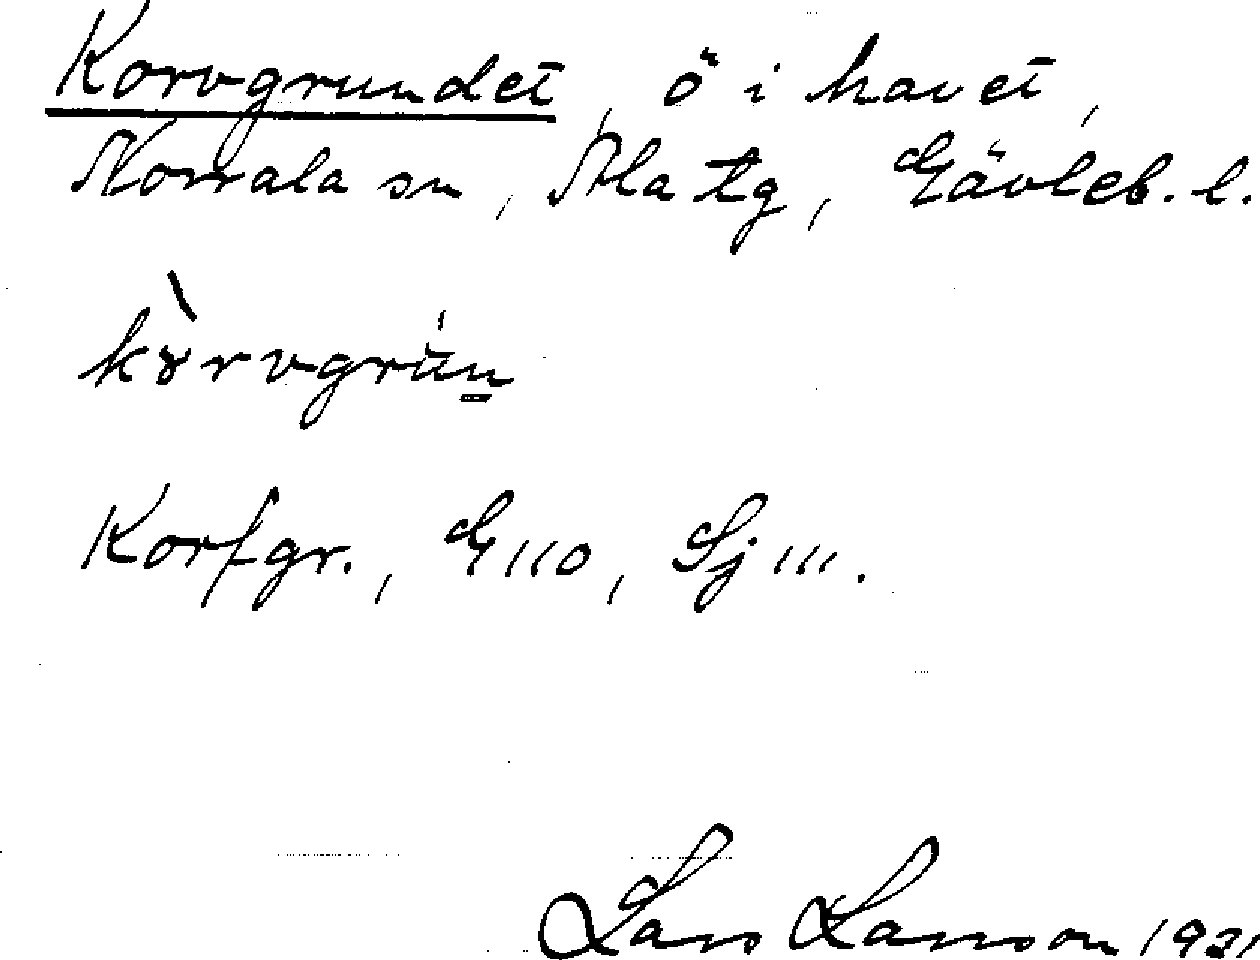 Korvgrundet, ö i havet,
Norrala sn, Ala tg, Gävleb. l.
kɤ̀rvgrún̲
Korfgr., G 110, Sj 111.
Lars Larsson 1931